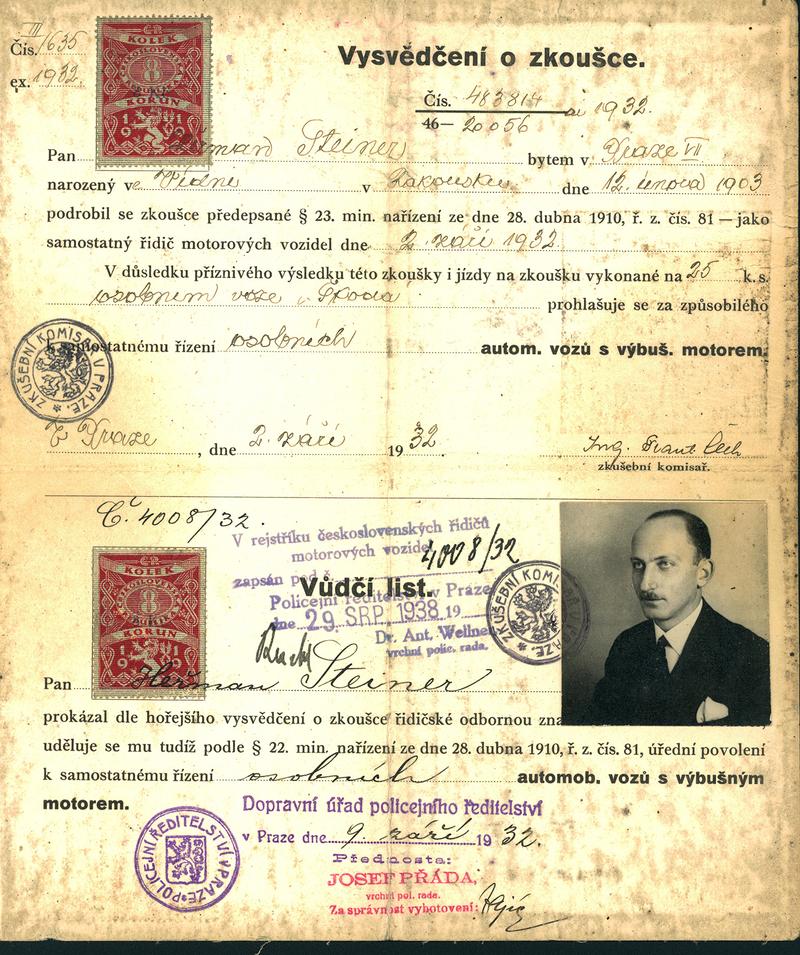 III
Čís. 1635
ex. 1932.
KOLEK
8
KORUN
1919
Vysvědčení o zkoušce.
Čís. 483814 ai 1932.
46— 20056
Pan Heřman Steiner bytem v Praze VII
narozený ve Vídni v Rakousku dne 12. února 1903
podrobil se zkoušce předepsané § 23. min. nařízení ze dne 28. dubna 1910, ř. z. čís. 81 — jako
samostatný řidič motorových vozidel dne 2. září 1932.
V důsledku příznivého výsledku této zkoušky i jízdy na zkoušku vykonané na 25 k. s.
osobním voze „Škoda" prohlašuje se za způsobilého
k samostatnému řízení osobních autom. vozů s výbuš. motorem.
ZKUŠEBNÍ KOMISAŘ V PRAZE
V Praze, dne 2. září 1932.
Ing. Frant Čech
zkušební komisař.
Č. 4008/32.
KOLEK
8
KORUN
1919
V rejstříku československých řidičů
motorových vozidel
zapsán pod č. 4008/32
Vůdčí list.
Policejní ředitelství v Praze
dne 29. SRP. 1938 19
Dr. Ant. Wellner
vrchní polic. rada.
ZKUŠEBNÍ KOMISAŘ V PRAZE
Pan Heřman Steiner
prokázal dle hořejšího vysvědčení o zkoušce řidičské odbornou zna
uděluje se mu tudíž podle § 22. min. nařízení ze dne 28. dubna 1910, ř. z. čís. 81, úřední povolení
k samostatnému řízení osobních automob. vozů s výbušným
motorem.
Dopravní úřad policejního ředitelství
v Praze dne 9. září 1932.
POLICEJNÍ ŘEDITELSTVÍ V PRAZE
Přednosta:
JOSEF PŘÁDA,
vrchní pol. rada.
Za správnost vyhotovení: